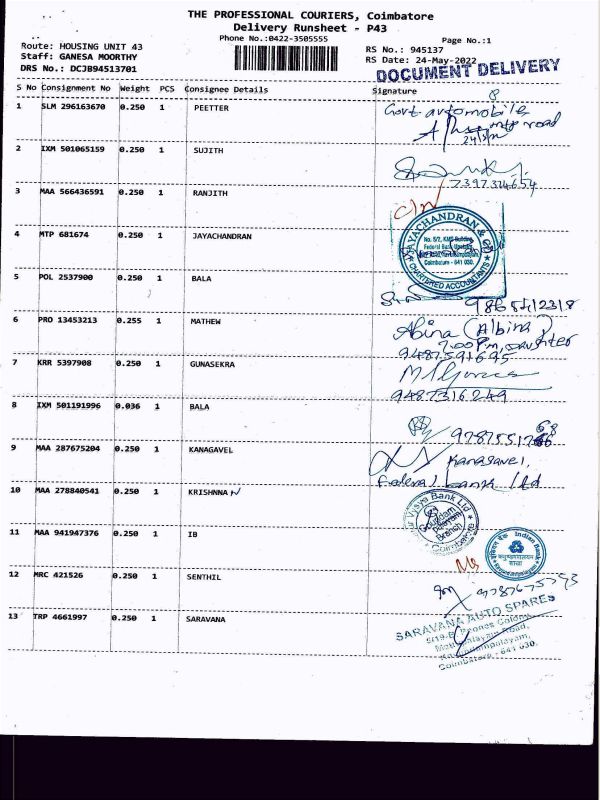 THE PROFESSIONAL COURIERS, Coimbatore
Delivery Runsheet - P43
Phone No.:0422-3505555
Page No.:1
Route: HOUSING UNIT 43
RS No.: 945137
Staff: GANESA MOORTHY
RS Date: 24-May-2022
DRS No.: DCJB94513701
DOCUMENT DELIVERY
S No Consignment No Weight PCS Consignee Details Signature
1 SLM 296163670 0.250 1 PEETTER
Govt automobile
road
2 IXM 501065159 0.250 1 SUJITH
3 MAA 566436591 0.250 1 RANJITH
C/N
4 MTP 681674 0.250 1 JAYACHANDRAN
JAYACHANDRAN & CO
No. 5/2, KMS Building,
Federal Bank Upstairs
Coimbatore - 641 030.
CHARTERED ACCOUNTANTS
5 POL 2537900 0.250 1 BALA
6 PRO 13453213 0.255 1 MATHEW
Abina (Albina)
7.00 Pm, Daughter
9487591695
7 KRR 5397908 0.250 1 GUNASEKRA
9487316249
8 IXM 501191996 0.036 1 BALA
9 MAA 287675204 0.250 1 KANAGAVEL
Kanagavel,
Federal bank Ltd
10 MAA 278840541 0.250 1 KRISHNNA
Vysya Bank Ltd
Branch
Coimbatore
11 MAA 941947376 0.250 1 IB
Indian Bank
12 MRC 421526 0.250 1 SENTHIL
13 TRP 4661997 0.250 1 SARAVANA
SARAVANA AUTO SPARES
Road,
Coimbatore - 641 030.